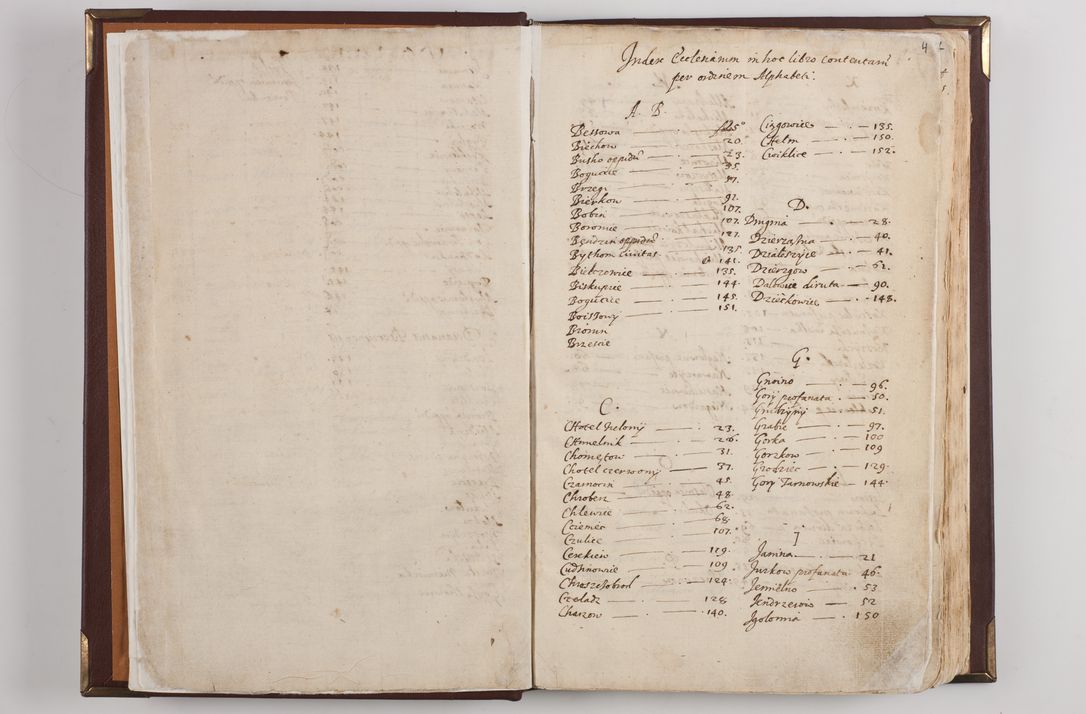 4
Index Ecclesiarum in hoc libro contentarum
per ordinem Alphabeti.
A. B.
Bessowa — folio 5°
Biechow — 20.
Busko oppidū — 23.
Bogucice — 35.
Brzegi — 57.
Bierkow — 92.
Bobin — 107.
Boronice — 107.
Bendzin oppidū — 127.
Bythom civitas — 135.
et 141.
Bielszowice — 135.
Biskupice — 144.
Bogucice — 145.
Boissowy — 151.
Bronin
Brzescie
C.
Chotel zielony — 23.
Chmelnik — 26.
Chometow — 31.
Chotel czerwony — 37.
Czarnocin — 45.
Chroberz — 48.
Chlewice — 62.
Cciemec — 68.
Czulice — 107.
Cerekiew — 119.
Cudzinowice — 109
Chroszczobrod — 124.
Czeladz — 128.
Charzow — 140.
Ciegowice — 135.
Chełm — 150.
Cwiklice — 152.
D.
Drugnia — 28.
Dzierzazna — 40.
Dzialoszyce — 41.
Dzierzgow — 61.
Dalewice diruta — 90.
Dzieckowice — 148.
G.
Gnoino — 96.
Gory profanata — 50.
Grudzyny — 51.
Grabie — 97.
Gorka — 100
Gorzkow — 109
Grodziec — 129.
Gory Tarnowskie — 144.
J
Janina — 21
Jurkow profanata — 46.
Jemielno — 53
Jendrzeiow — 52
Jgolomia — 150